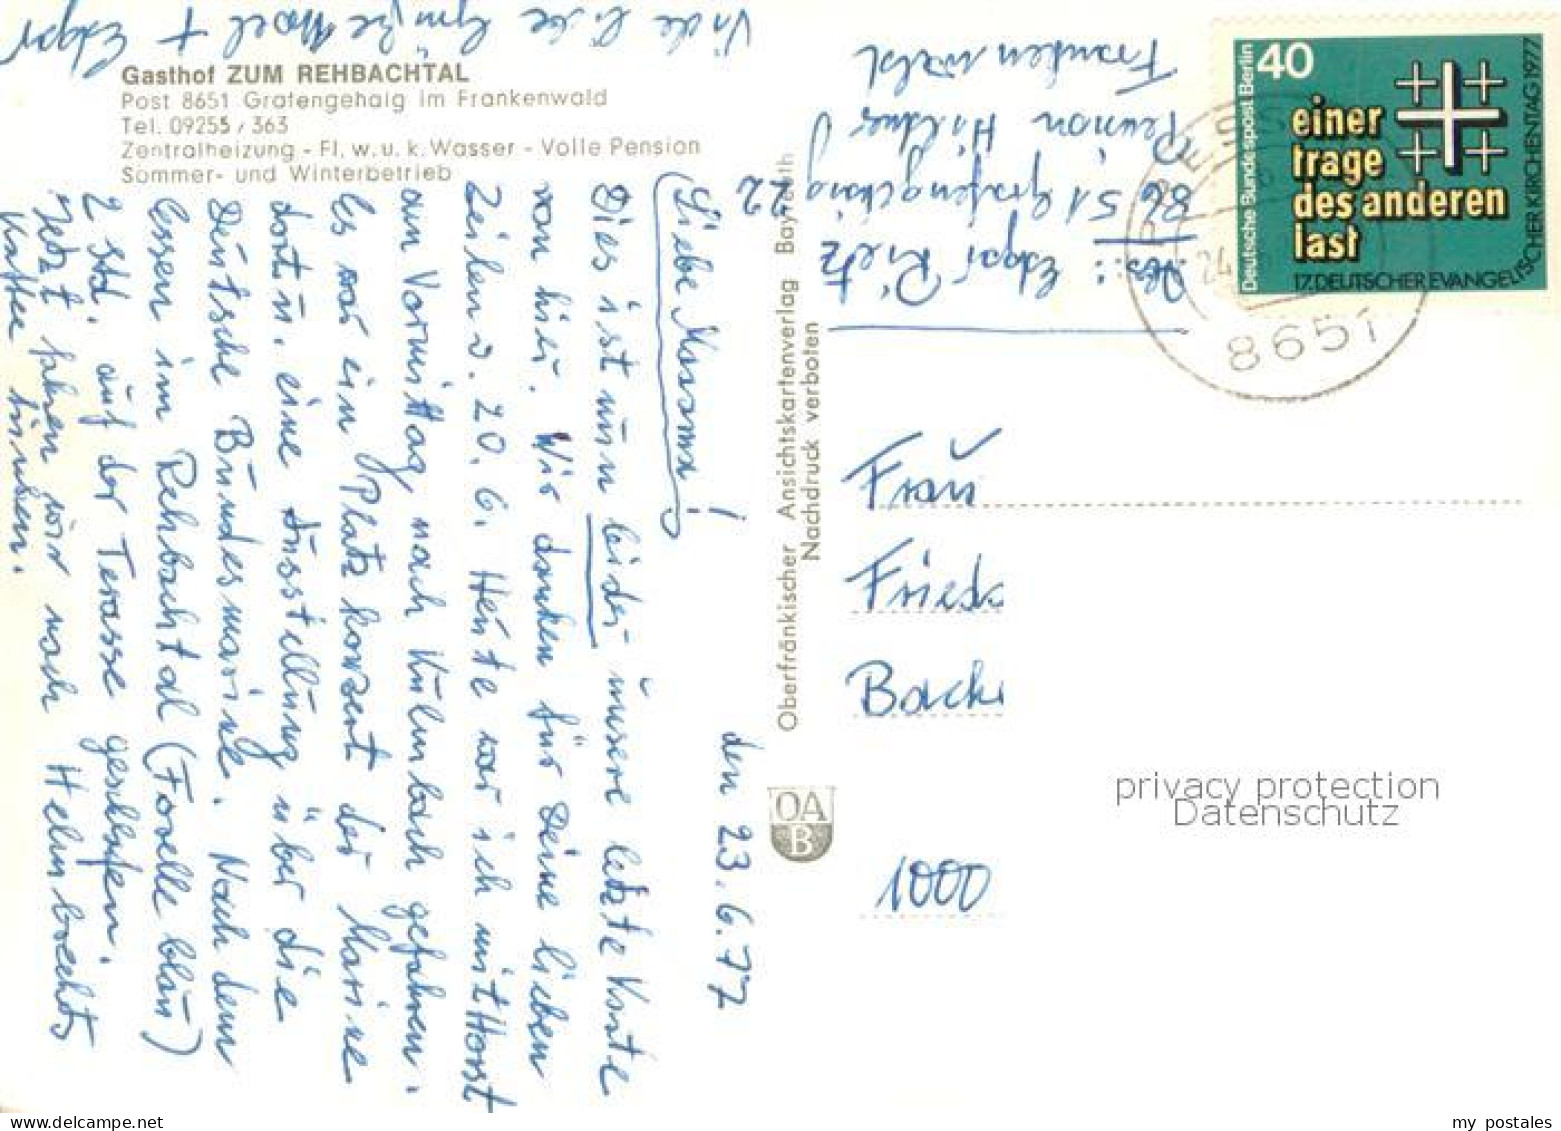 Gasthof ZUM REHBACHTAL
Post 8651 Grafengehaig im Frankenwald
Tel. 09255 / 363
Zentralheizung - Fl. w. u. k. Wasser - Volle Pension
Sommer- und Winterbetrieb
den 23.6.77
Liebe Mamma!
Dies ist nun leider unsere letzte Karte
von hier. Wir danken für Deine lieben
Zeilen v. 20.6. Heute war ich mit Horst
am Vormittag nach Kulmbach gefahren.
Es war ein Platzkonzert der Marine
dort u. eine Ausstellung über die
Deutsche Bundesmarine. Nach dem
Essen im Rehbachtal (Forelle blau)
2 Std. auf der Terasse geschlafen.
Jetzt fahren wir nach Helmbrechts
Kaffee trinken.
Viele liebe Grüße + Edgar
Oberfränkischer Ansichtskartenverlag Bayreuth
Nachdruck verboten
OA
B
Abs.: Edgar Rietz
8651 Grafengehaig 22
Pension Hildner
Frankenwald
Deutsche Bundespost Berlin
40
einer
trage
des anderen
last
17. DEUTSCHER EVANGELISCHER KIRCHENTAG 1977
24
8651
Frau
Frieda
Backe
1000
privacy protection
Datenschutz
my postales